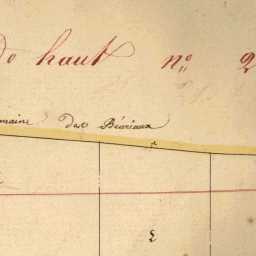 do haut n° 2
maine des Bévriaux
2